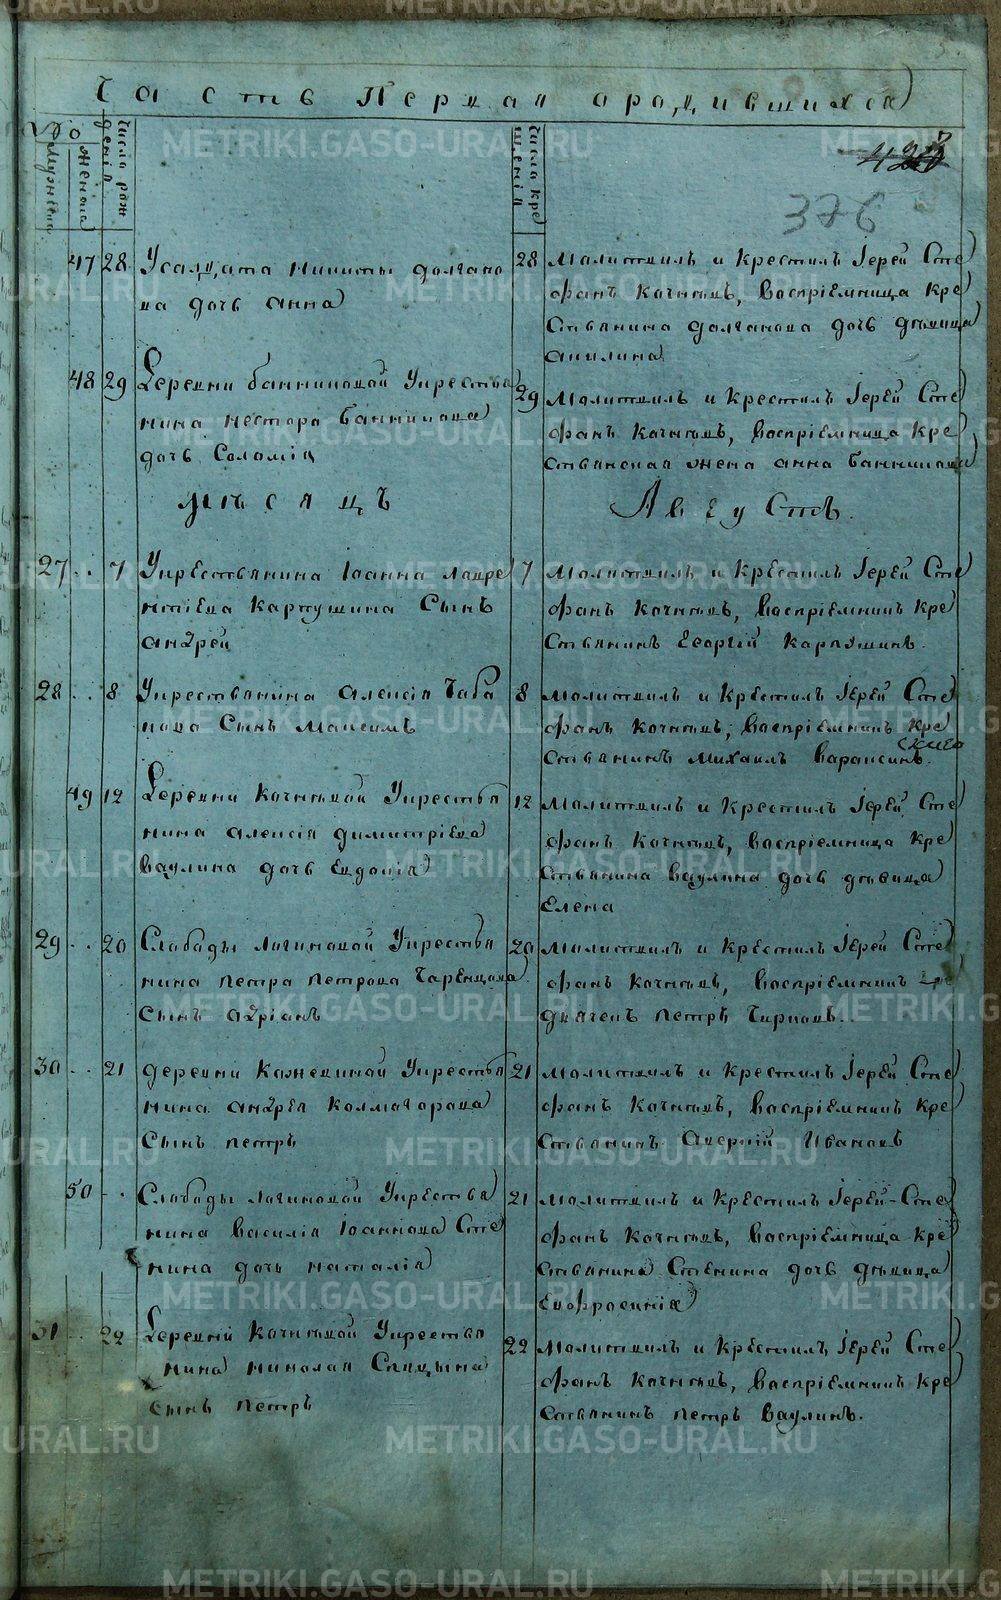 Часть Первая ородившихся
Мужеска
Женска
Число рождения
Число крещения
376
47 28 Усалдата Никиты Долгано
ва дочь Анна
28 Молитвилъ и крестилъ Іерей Сте
фанъ Кочневъ, воспріемница кре
стьянина Долганова дочь девица
Акилина
48 29 Деревни Банниковой Укрестья
нина Нестора Банникова
дочь Соломія
29 Молитвилъ и крестилъ Іерей Сте
фанъ Кочневъ, воспріемница кре
стьянская жена Анна Банникова
Месяцъ Августъ.
27 .. 7 Укрестьянина Іоанна Лавре
нтіева Карпушина Сынъ
Андрей
7 Молитвилъ и крестилъ Іерей Сте
фанъ Кочневъ, воспріемникъ кре
стьянинъ Георгій Карпушинъ.
28 .. 8 Укрестьянина Алексія Чаба
нова Сынъ Максимъ
8 Молитвилъ и крестилъ Іерей Сте
фанъ Кочневъ, воспріемникъ кре
стьянинъ Михаилъ Вараксинъ.
49 12 Деревни Кочневой Укрестья
нина Алексія Димитріева
Ваулина дочь Евдокія
12 Молитвилъ и крестилъ Іерей Сте
фанъ Кочневъ, воспріемница кре
стьянина Ваулина дочь девица
Елена
29 .. 20 Слабады Логиновой Укрестья
нина Петра Петрова
Сынъ Адріанъ
20 Молитвилъ и крестилъ Іерей Сте
фанъ Кочневъ, воспріемникъ
дьячекъ Петръ
30 .. 21 Деревни Кажевиной Укрестья
нина Андрея Колмагорова
Сынъ Петръ
21 Молитвилъ и крестилъ Іерей Сте
фанъ Кочневъ, воспріемникъ кре
стьянинъ Аверкій Ивановъ
50 .. Слабады Логиновой Укрестья
нина Василія Іоаннова Сте
нина дочь Наталія
21 Молитвилъ и крестилъ Іерей Сте
фанъ Кочневъ, воспріемница кре
стьянина Стенина дочь девица
Евфросинія
31 .. 22 Деревни Кочневой Укрестья
нина Николая Спицына
сынъ Петръ
22 Молитвилъ и крестилъ Іерей Сте
фанъ Кочневъ, воспріемникъ кре
стьянинъ Петръ Ваулинъ.
METRIKI.GASO-URAL.RU